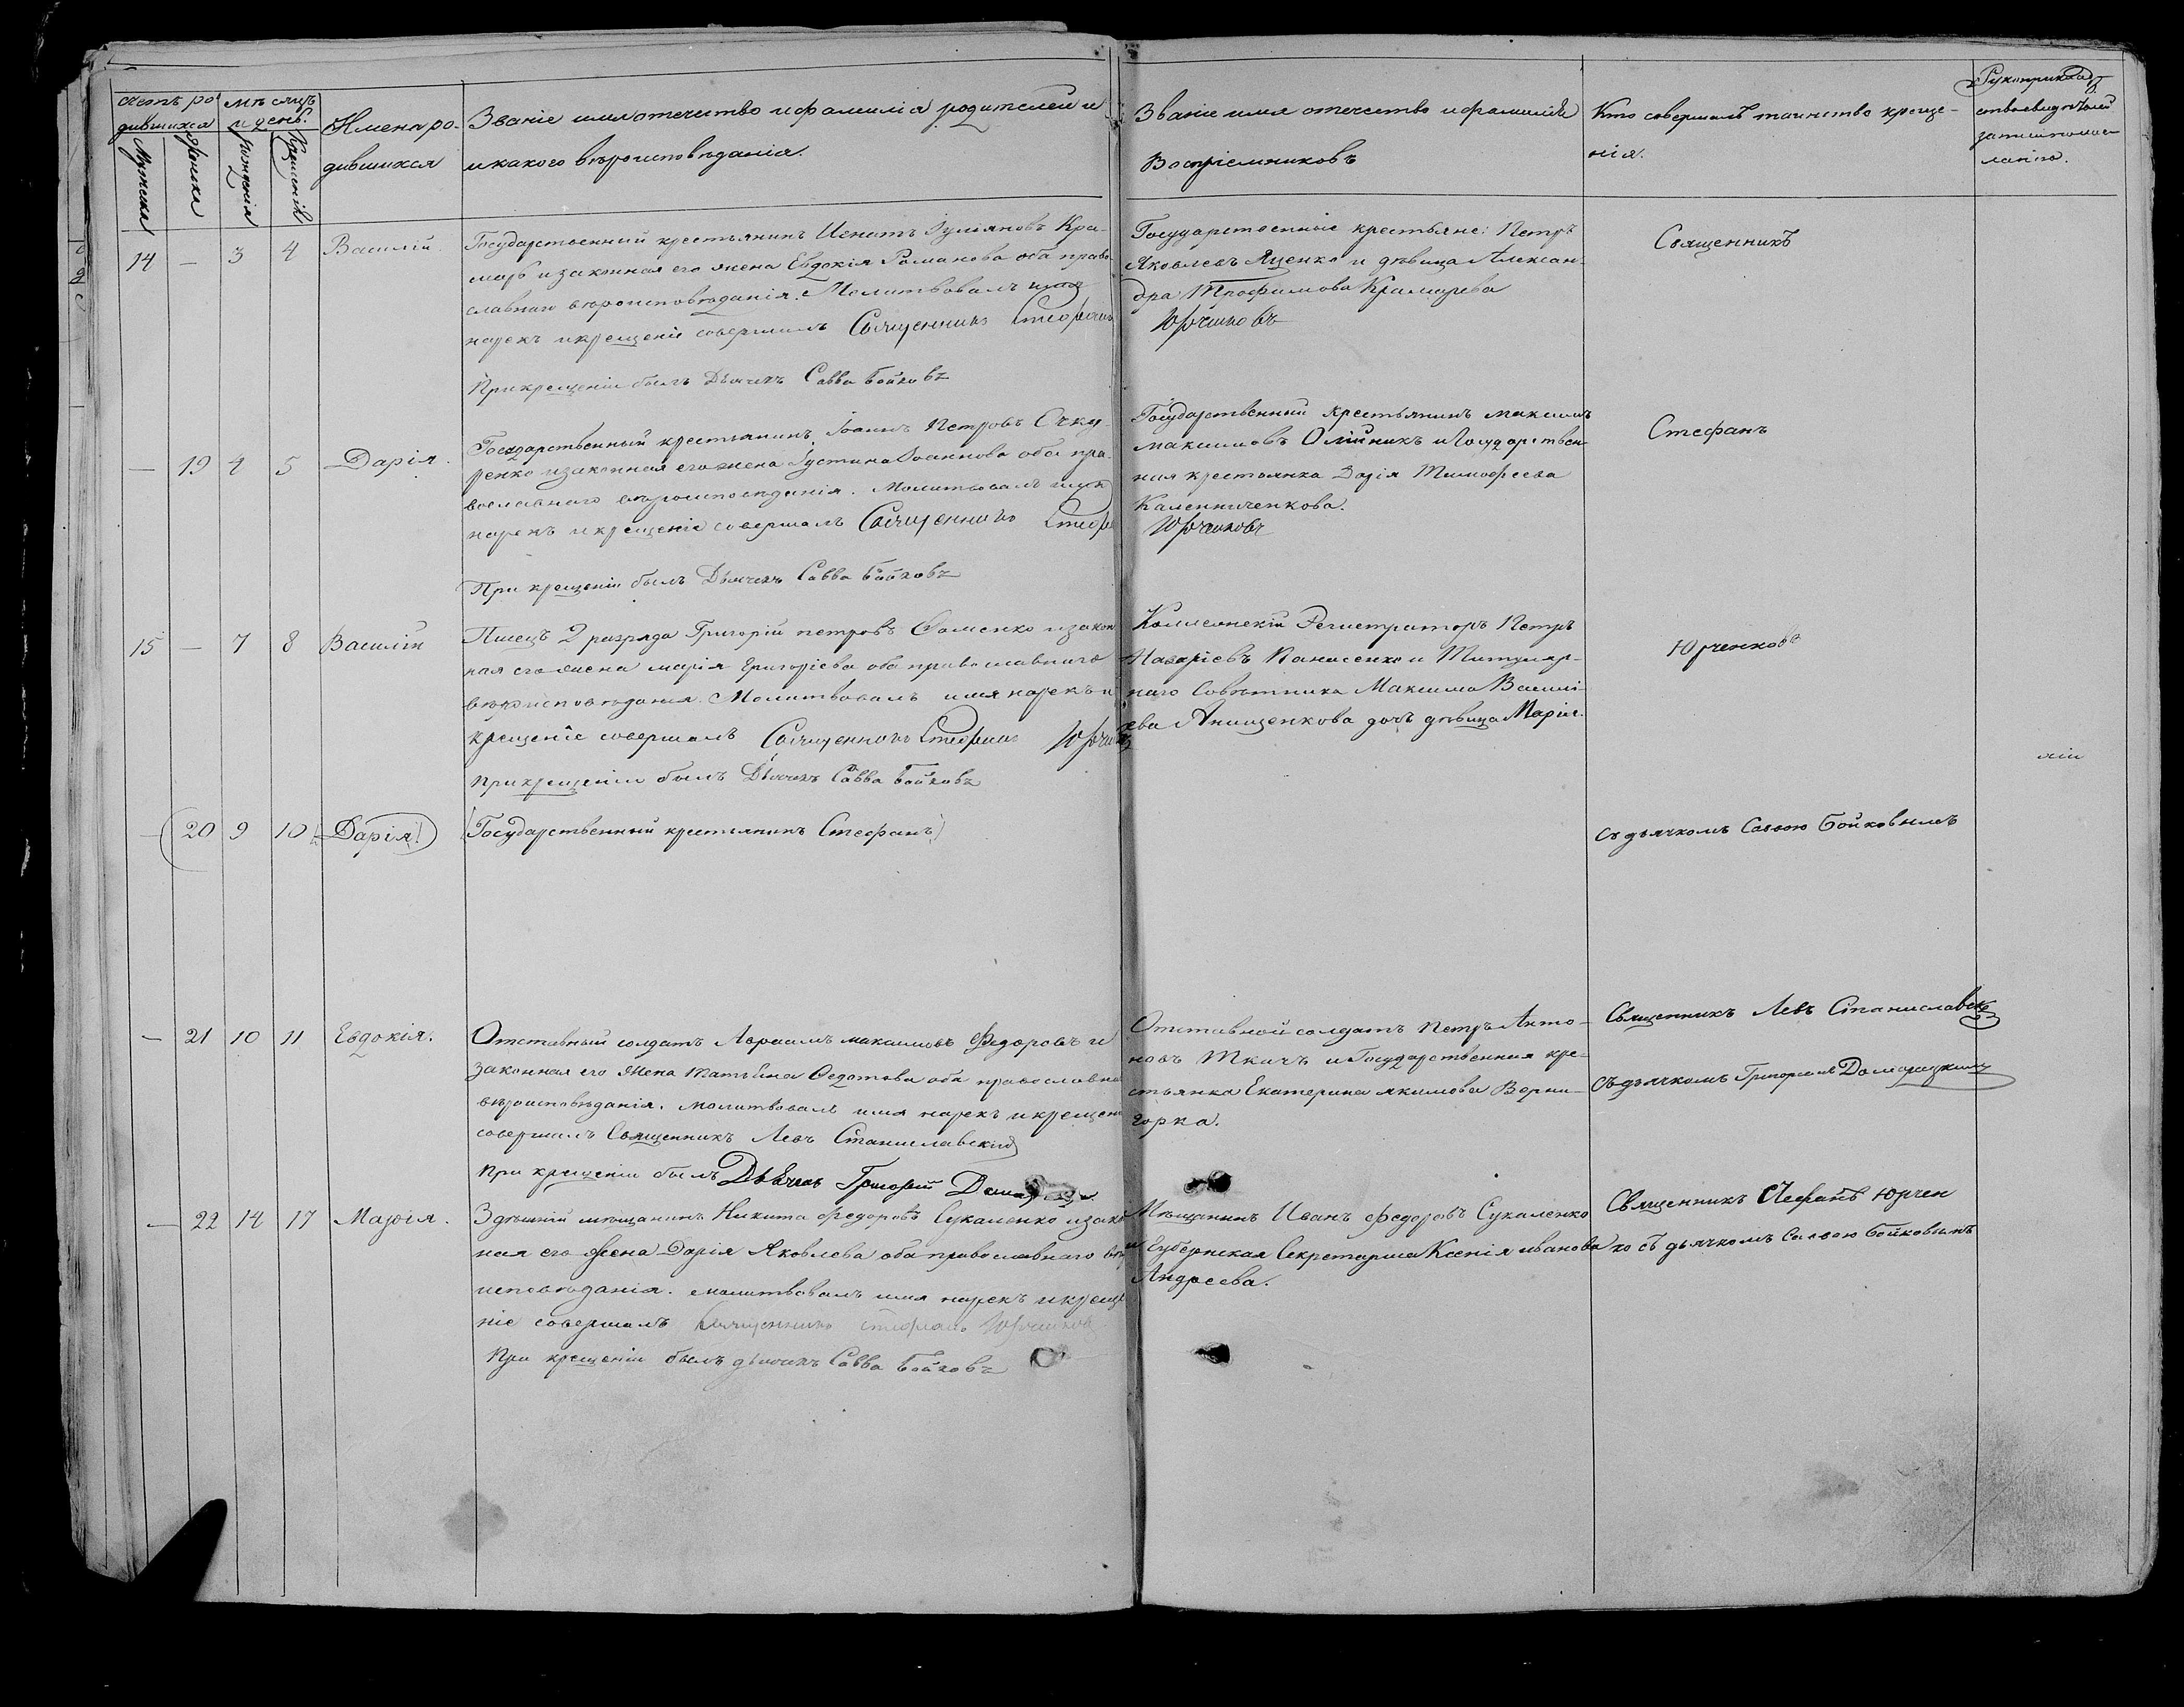 Счетъ ро
дившихся
Мужска
Женска
Мѣсяцъ
и день.
Рожденія
Крещенія
Имена ро-
дившихся
Званіе имя отечество и фамилія родителей и
и какого вѣроисповѣданія.
Званіе имя отечество и фамилія
Воспріемниковъ
Кто совершалъ таинство креще-
нія.
Рукоприклад
ство свидѣтелей
записи по же-
ланію.
14 — 3 4 Василій
Государственный крестьянинъ Игнатъ Іуліановъ Кра-
марь и законная его жена Евдокія Романова оба право-
славнаго вѣроисповѣданія. Молитвовалъ имя
нарекъ и крещеніе совершалъ Священникъ Стефанъ
При крещеніи былъ Дьячекъ Савва Бойковъ
Государственные крестьяне: Петръ
Яковлевъ Яценко и дѣвица Алексан-
дра Трофимова Крамарева
Юрченковъ
Священникъ
— 19 4 5 Дарія.
Государственный крестьянинъ Іоаннъ Петровъ Очку-
ренко и законная его жена Іустина Іоаннова оба пра-
вославнаго вѣроисповѣданія. Молитвовалъ имя
нарекъ и крещеніе совершалъ Священникъ Стеф
При крещеніи былъ Дьячекъ Савва Бойковъ
Государственный крестьянинъ Максимъ
Максимовъ Олійникъ и Государствен-
ная крестьянка Дарія Тимофеева
Каленниченкова.
Юрченковъ
Стефанъ
15 — 7 8 Василій
Писецъ 2 разряда Григорій Петровъ Фоменко и закон
ная его жена Марія Григоріева оба православнаго
вѣроисповѣданія. Молитвовалъ имя нарекъ и
крещеніе совершалъ Священникъ Стефанъ Юрчен
При крещеніи былъ Дьячекъ Савва Бойковъ
Коллежскій Регистраторъ Петръ
Назаріевъ Панасенко и Титуляр-
наго Совѣтника Максима Василі-
ева Анищенкова дочь дѣвица Марія.
Юрченковъ
лій
— 20 9 10 Дарія
(Государственный крестьянинъ Стефанъ)
Съ дьячкомъ Саввою Бойковымъ
— 21 10 11 Евдокія.
Отставный солдатъ Авраамъ Максимовъ Федоровъ и
законная его жена Татьяна Федотова оба православна
вѣроисповѣданія. Молитвовалъ имя нарекъ и крещені
совершалъ Священникъ Левъ Станиславскій
При крещеніи былъ Дьячекъ Григорій
Отставной солдатъ Петръ Анто-
новъ Ткачъ и Государственная кре-
стьянка Екатерина Якимова Верни-
горка.
Священникъ Левъ Станиславск
Съ дьячкомъ Григоріемъ Домарацкимъ
— 22 14 17 Марія.
Здѣшній мѣщанинъ Никита Федоровъ Сукаленко и закон
ная его жена Дарія Яковлева оба православнаго вѣро
исповѣданія. Молитвовалъ имя нарекъ и креще
ніе совершалъ Священникъ Стефанъ Юрченков
При крещеніи былъ дьячекъ Савва Бойковъ
Мѣщанинъ Иванъ Федоровъ Сукаленко
и Губернская Секретарша Ксенія Иванова
Андреева.
Священникъ Стефанъ Юрчен
ко съ дьячкомъ Саввою Бойковымъ